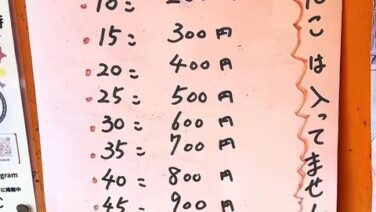 15コ 300円
20コ 400円
25コ 500円
30コ 600円
35コ 700円
40コ 800円
45コ 900円
こは入ってません!
gram